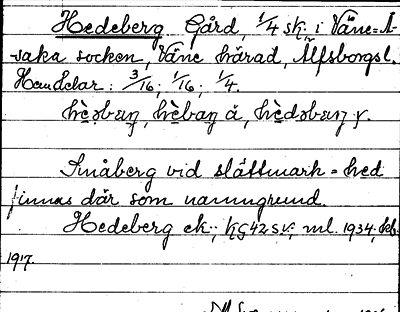 Hedeberg Gård, 1/4 sk. i Väne-Å-
-saka socken, Väne härad, Älfsborgs l.
Hemdelar: 3/16; 1/16; 1/4.
å, y.
Småberg vid slättmark = hed
finnas där som namngrund.
Hedeberg ek., KG 42 sv, ml. 1934, kb.
1917.